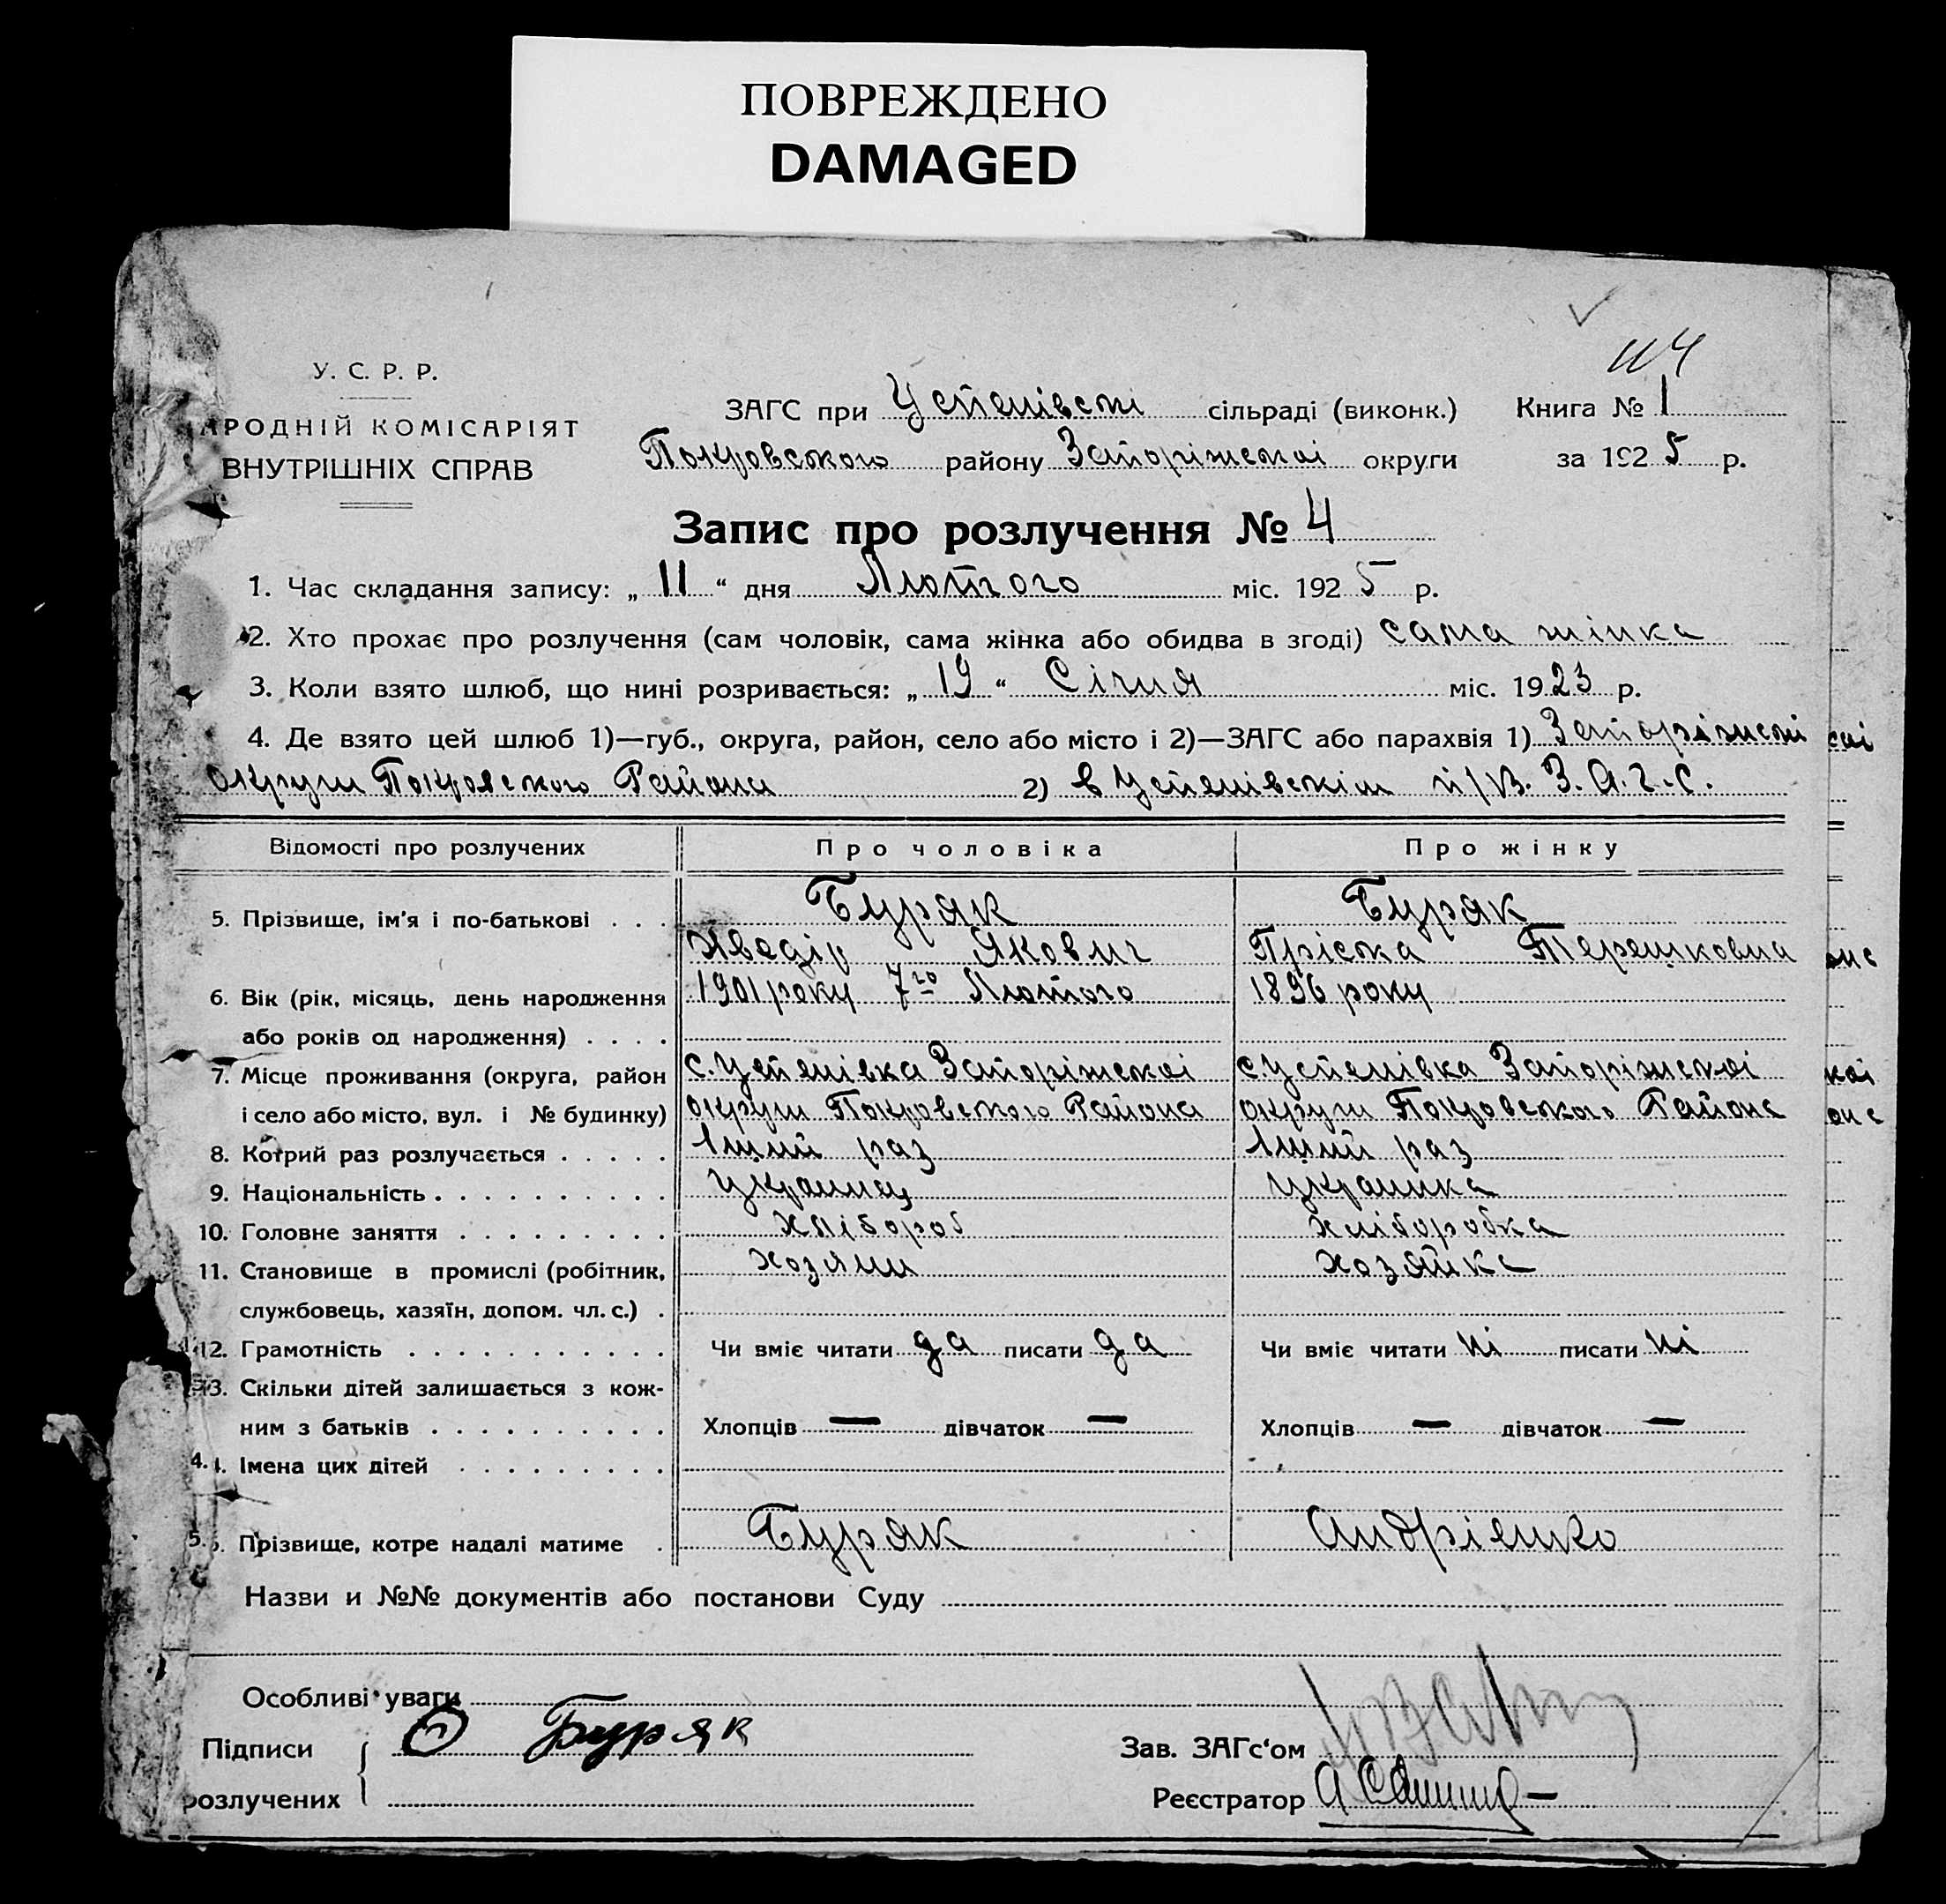 ПОВРЕЖДЕНО
DAMAGED
У. С. Р. Р.
АРОДНІЙ КОМІСАРІЯТ
ВНУТРІШНІХ СПРАВ
ЗАГС при Успенівскі сільраді (виконк.) Книга № 1
Покровського району Запоріжскоі округи за 1925 р.
Запис про розлучення № 4
1. Час складання запису: „11“ дня Лютого міс. 1925 р.
2. Хто прохає про розлучення (сам чоловік, сама жінка або обидва в згоді) сама жінка
3. Коли взято шлюб, що нині розривається: „19“ Січня міс. 1923 р.
4. Де взято цей шлюб 1)—губ., округа, район, село або місто і 2)—ЗАГС або парахвія 1) Запоріжскі
округи Покровского Района 2) в Успенівскім п/в. З.А.Г.С.
Відомості про розлучених Про чоловіка Про жінку
5. Прізвище, ім'я і по-батькові . . . Буряк Буряк
Хведір Якович Пріська Терешковна
6. Вік (рік, місяць, день народження 1901 року 7го Лютого 1896 року
або років од народження) . . . .
7. Місце проживання (округа, район с. Успенівка Запоріжскоі с. Успенівка Запоріжскоі
і село або місто, вул. і № будинку) округи Покровського Района округи Покровського Района
8. Котрий раз розлучається . . . . . 1ший раз 1ший раз
9. Національність . . . . . . . . . . украинец украинка
10. Головне заняття . . . . . . . . . хлібороб хліборобка
11. Становище в промислі (робітник, хозяин хозяйка
службовець, хазяїн, допом. чл. с.) .
12. Грамотність . . . . . . . . . . . Чи вміє читати да писати да Чи вміє читати ні писати ні
13. Скільки дітей залишається з кож-
ним з батьків . . . . . . . . . . Хлопців — дівчаток — Хлопців — дівчаток —
4. Імена цих дітей . . . . . . . . .
5. Прізвище, котре надалі матиме . Буряк Андріенко
Назви и №№ документів або постанови Суду
Особливі уваги
Підписи Буряк Зав. ЗАГс'ом
розлучених Реєстратор